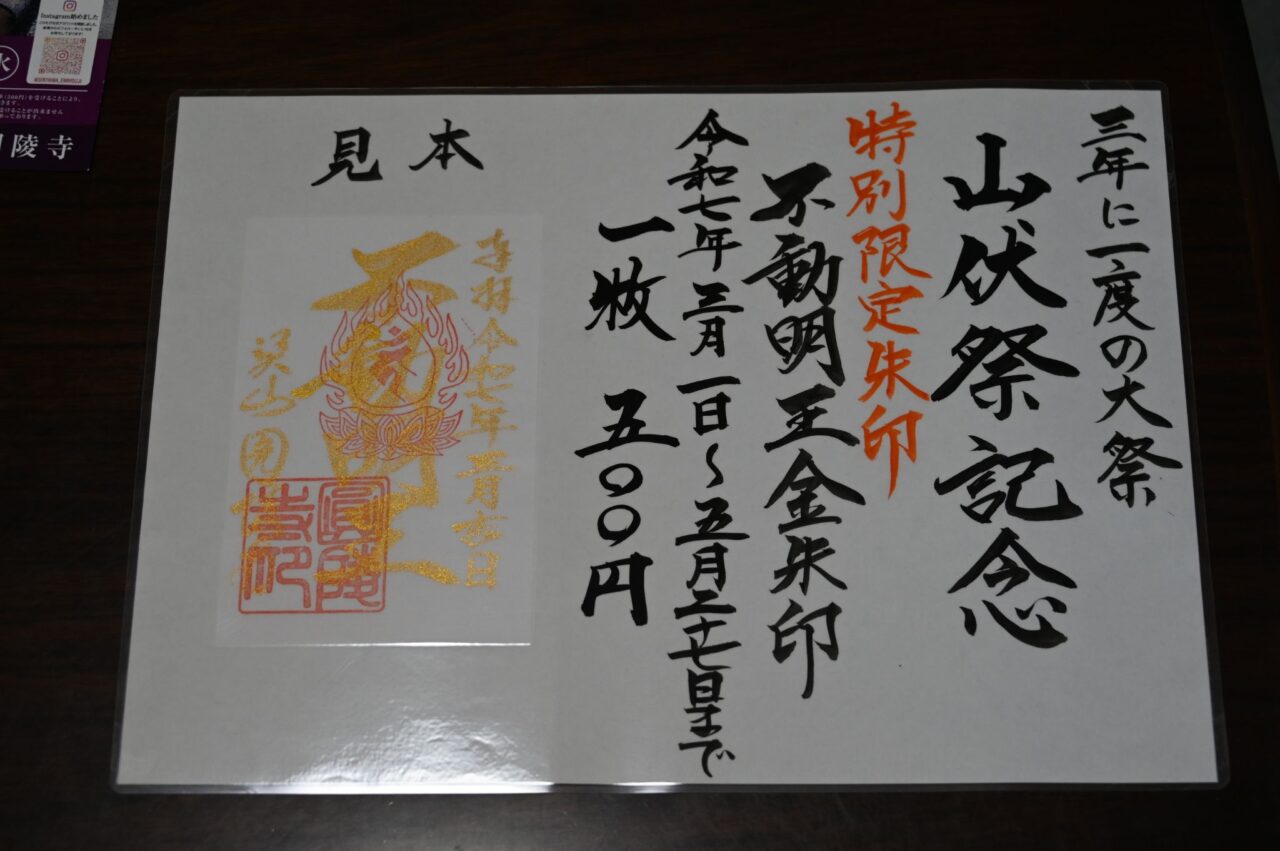 三年に一度の大祭
山伏祭記念
特別限定朱印
不動明王金朱印
令和七年三月一日～五月二十七日まで
一枚 五〇〇円
見本
奉拝令和七年三月吉日
不動明王
Instagram始めました
陵寺